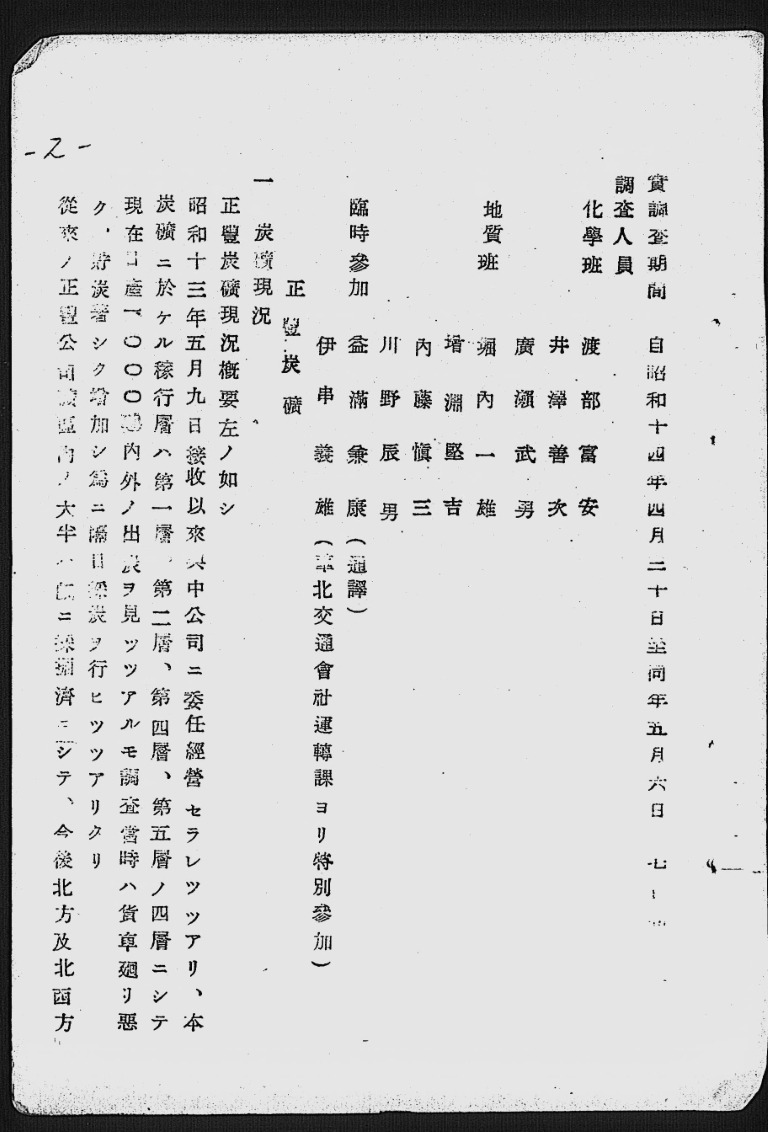 -2-
實調査期間 自昭和十四年四月二十日至同年五月六日 七
調査人員
化學班 渡部富安
井澤善次
廣瀬武勇
地質班 堀內一雄
増淵堅吉
內藤愼三
川野辰男
臨時參加 益滿兼康(通譯)
伊串義雄(華北交通會社運轉課ヨリ特別參加)
正豐炭礦
一 炭礦現況
正豐炭礦現況槪要左ノ如シ
昭和十三年五月九日接收以來興中公司ニ委任經營セラレツツアリ、本
炭礦ニ於ケル稼行層ハ第一層、第二層、第四層、第五層ノ四層ニシテ
現在日産一〇〇〇噸內外ノ出炭ヲ見ッツアルモ調査當時ハ貨車廻リ惡
ク、貯炭著シク增加シ爲ニ隔日採炭ヲ行ヒツツアリタリ
從來ノ正豐公司礦區內ノ大半ハ既ニ採掘濟ニシテ、今後北方及北西方